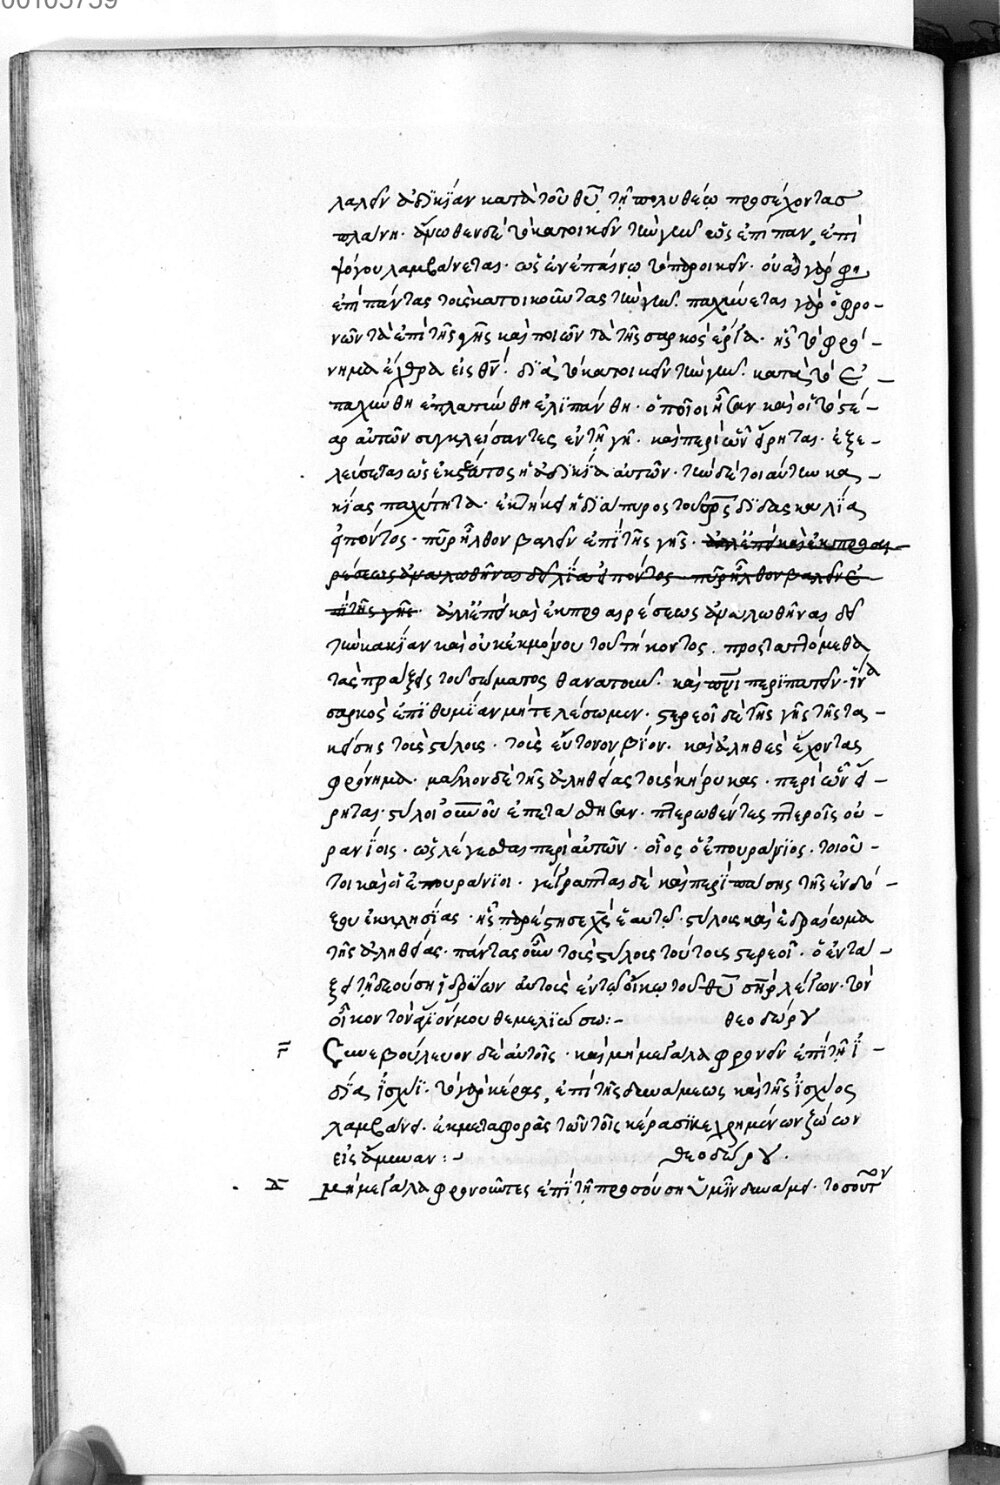 00103739
λαλεῖν ἀδικίαν κατὰ τοῦ θῦ τῇ πολυθέῳ προσέχοντας
πλάνῃ. ἄνωθεν δὲ τὸ κατοικεῖν τὴν γῆν ὡς ἐπίπαν ἐπὶ
ψόγου λαμβάνεται. ὡς ἐν ἐπαίνῳ τὸ παροικεῖν. οὐαὶ γάρ φη
ἐπὶ πάντας τοὺς κατοικοῦντας τὴν γῆν. παχύνεται γὰρ ὁ φρο-
νῶν τὰ ἐπὶ τῆς γῆς καὶ ποιῶν τὰ τῆς σαρκὸς ἔργα. ἧς τὸ φρό-
νημα ἔχθρα εἰς θν. διὰ τὸ κατοικεῖν τὴν γῆν. κατὰ τὸ ἐ-
παχύνθη ἐπλατύνθη ἐλιπάνθη. ὁποῖοι ἦσαν καὶ οἱ τὸ στέ-
αρ αὐτῶν συγκλείσαντες ἐν τῇ γῇ. καὶ περὶ ὧν εἴρηται. ἐξε-
λεύσεται ὡς ἐκ στέατος ἡ ἀδικία αὐτῶν. τὴν δὲ τοιαύτην κα-
κίας παχύτητα. ἐκτήκει ἡ διὰ πυρὸς τοῦ πρς διδασκαλία
εἰπόντος. πῦρ ἦλθον βαλεῖν ἐπὶ τῆς γῆς. ἀλλ' ἐπεὶ καὶ ἐκ προαι-
ρέσεως ἀναλωθῆναι δεῖ εἰπόντος πῦρ ἦλθον βαλεῖν ἐ-
πὶ τῆς γῆς. ἀλλ' ἐπεὶ καὶ ἐκ προαιρέσεως ἀναλωθῆναι δεῖ
τὴν κακίαν καὶ οὐκ ἐκ μόνου τοῦ τήκοντος. προσταττόμεθα
τὰς πράξεις τοῦ σώματος θανατοῦν. καὶ πνι περιπατεῖν. ἵνα
σαρκὸς ἐπιθυμίαν μὴ τελέσωμεν. στερεοῖ δὲ τῆς γῆς τῆς τα-
κείσης τοὺς στύλους. τοὺς εὔτονον βίον. καὶ ἀληθὲς ἔχοντας
φρόνημα. μᾶλλον δὲ τῆς ἀληθείας τοὺς κήρυκας. περὶ ὧν εἴ-
ρηται. στύλοι οὐνοῦ ἐπετάσθησαν. πτερωθέντες πτεροῖς οὐ-
ρανίοις. ὡς λέγεσθαι περὶ αὐτῶν. οἷος ὁ ἐπουράνιος. τοιοῦ-
τοι καὶ οἱ ἐπουράνιοι. γέγραπται δὲ καὶ περὶ πάσης τῆς ἐνδό-
ξου ἐκκλησίας. ἧς παρέστησε χς ἑαυτῷ. στύλος καὶ ἑδραίωμα
τῆς ἀληθείας. πάντας οὖν τοὺς στύλους τούτους στερεοῖ. ὁ ἐν τά-
ξει τῇ δεούσῃ ἱδρύων αὐτοὺς ἐν τῷ οἴκῳ τοῦ θῦ σηρ λέγων. τὸν
οἶκον τὸν ἅγιόν μου θεμελιώσω:- θεοδώρου
Γ Συνεβούλευον δὲ αὐτοῖς. καὶ μὴ μεγάλα φρονεῖν ἐπὶ τῇ ἰ-
δίᾳ ἰσχύϊ. τὸ γὰρ κέρας, ἐπὶ τῆς δυνάμεως καὶ τῆς ἰσχύος
λαμβάνει. ἐκ μεταφορᾶς τῶν τοῖς κέρασι κεχρημένων ζώων
εἰς ἄμυναν:- θεοδώρου.
Δ Μὴ μεγάλα φρονοῦντες ἐπὶ τῇ προσούσῃ ὑμῖν δυνάμει. τοσοῦτον